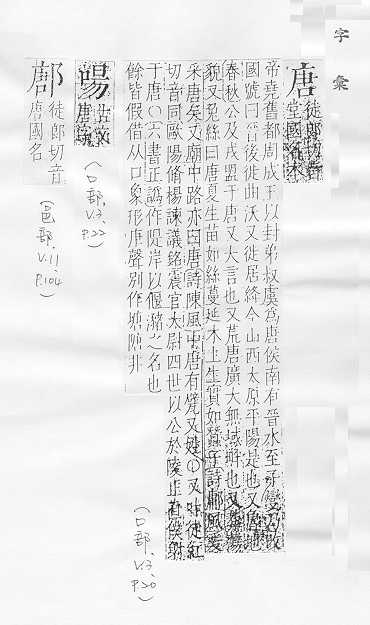 字彙
唐
徒郎切音
堂國名本
帝堯舊都周成王以封弟叔虞爲唐侯南有晉水至子燮乃改
國號曰晉後徙曲沃又徙居絳今山西太原平陽是也又魯地
春秋公及戎盟于唐又大言也又荒唐廣大無域畔也又
貌又兔絲曰唐夏生苗如絲蔓延木上生實如蠶子詩鄘風爰
采唐矣又廟中路亦曰唐詩陳風中唐有甓又姓○又叶徒紅
切音同歐陽脩楊諫議銘震官太尉四世以公於陵正直僕射
于唐○六書正譌作隄岸以偃瀦之名也
餘皆假借从口象形庚聲別作塘隄非
(口部、V.3、P.20)
啺
古文
唐字
(口部、V.3、P.22)
鄌
徒郎切音
唐國名
(邑部、V.11、P.104)